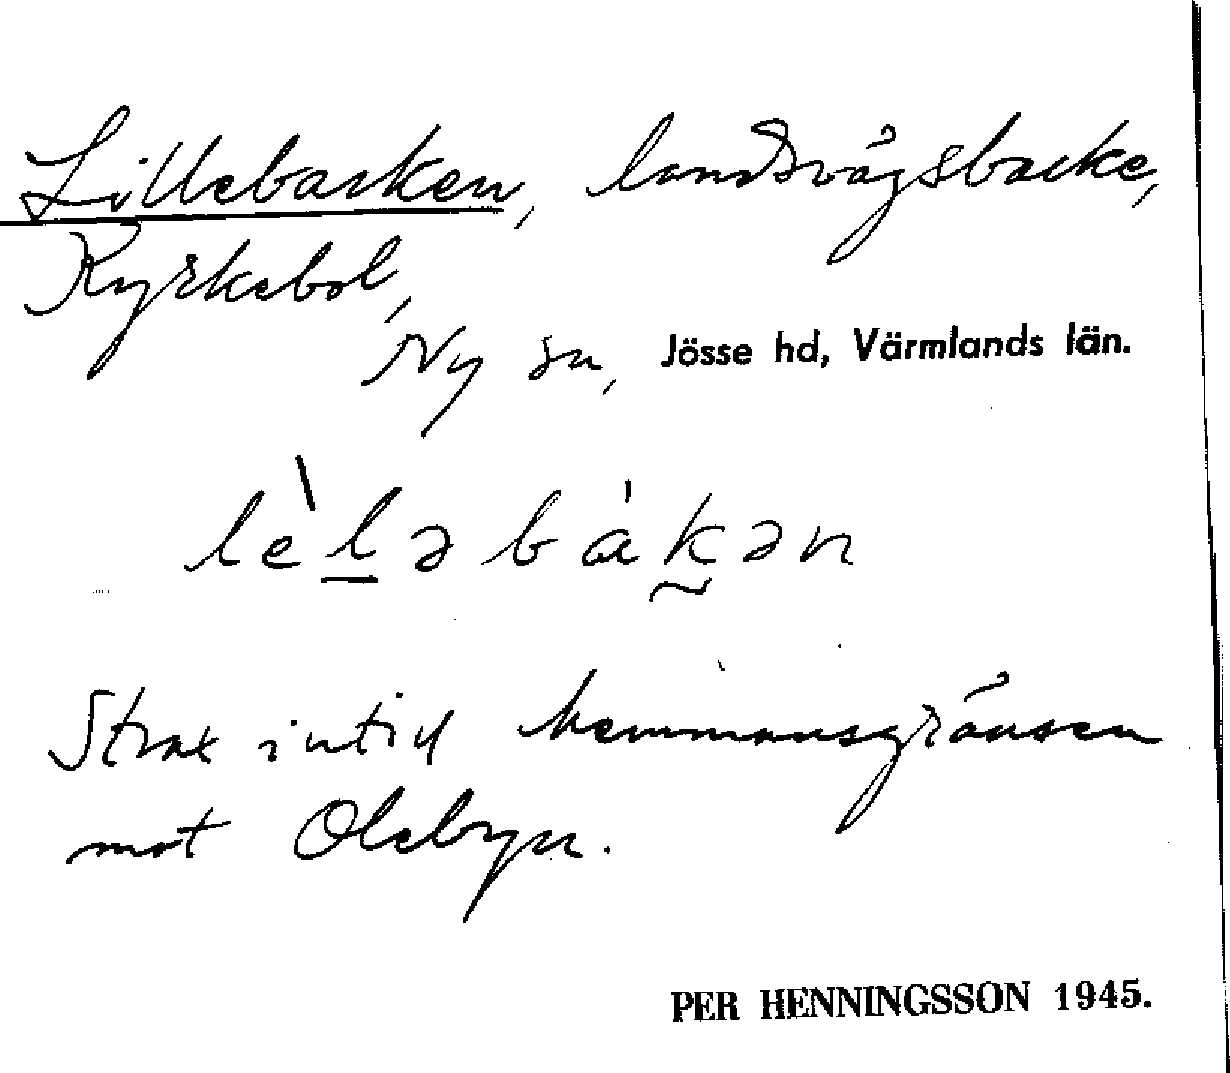 Lillebacken, landsvägsbacke,
Kyrkebol,
Ny sn, Jösse hd, Värmlands län.
lèl̲əbák̰ən
Strax intill hemmansgränsen
mot Olebyn.
PER HENNINGSSON 1945.